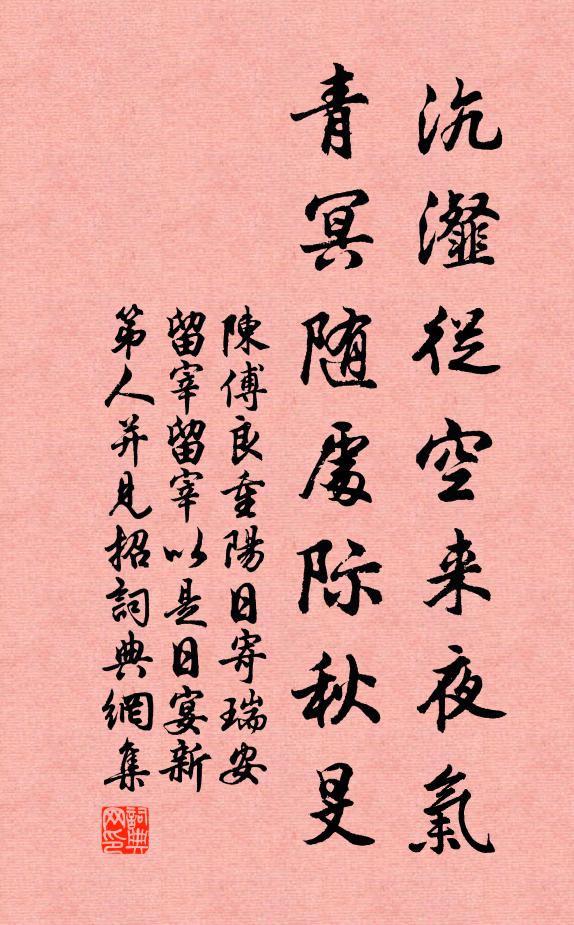 沆瀣從空来夜氣
青冥随處际秋旻
陳傅良重陽日寄瑞安
留宰留宰以是日宴新
第人并見招詞典網集
詞典网印